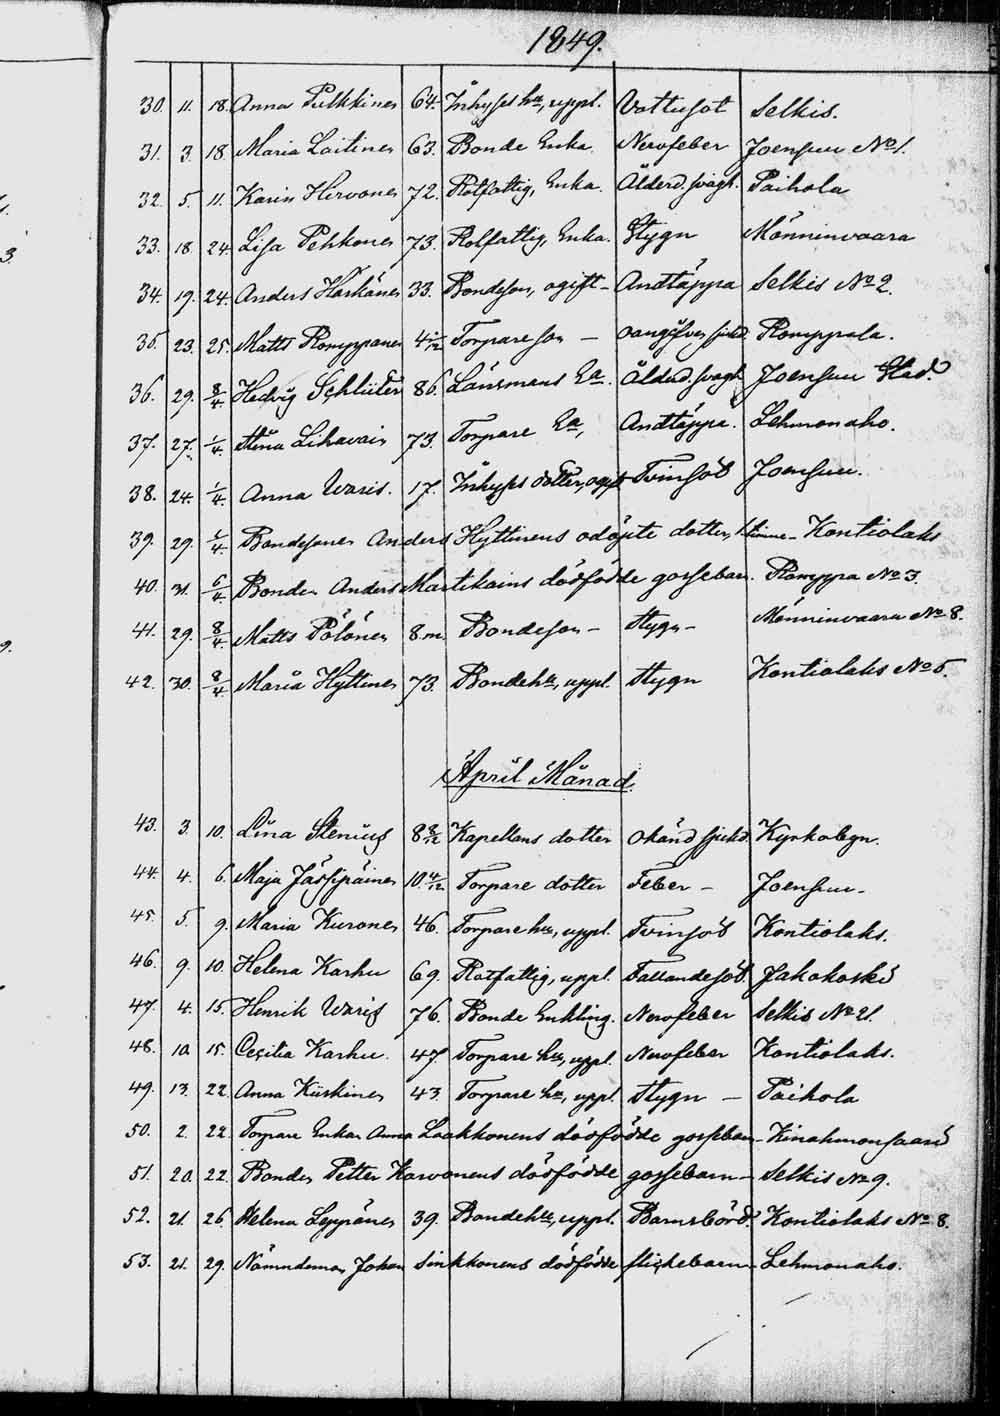 1849.
30. 11. 18. Anna Pulkkinen 64. Inhyses hu, uppl. Vattusot Selkis.
31. 3. 18. Maria Laitinen 63. Bonde Enka. Nervfeber Joensuu No 1.
32. 5. 11. Karin Hirvonen 72. Rotfattig, Enka. Ålderd. svagh. Paihola
33. 18. 24. Lisa Pehkonen 73. Rotfattig, Enka. Stygn Mönninvaara
34. 19. 24. Anders Härkänen 33. Bondeson, ogift – Andtäppa Selkis No 2.
35. 23. 25. Matts Romppanen Torpareson – oangifven sjukd. Romppala.
36. 29. 8/4. Hedvig Schlüter 86. Länsmans Ea. Ålderd. svagh. Joensuu Stad.
37. 27. 1/4. Stina Lihavain 73. Torpare Ea, Andtäppa. Lehmonaho.
38. 24. 1/4. Anna Waris. 17. Inhyses dotter, ogift Tvinsot Joensuu.
39. 29. 1/4. Bondesonen Anders Hyttinens odöpte dotter, 1 timme – Kontiolaks
40. 31. 6/4. Bonden Anders Martikains dödfödde gossebarn. Romppa No 3.
41. 29. 8/4. Matts Pölönen 8. m. Bondeson – Stygn – Mönninvaara No 8.
42. 30. 8/4. Maria Hyttinen 73. Bondehu, uppl. Stygn Kontiolaks No 5.
April Månad.
43. 3. 10. Lina Stenius 8 8/12 Kapellans dotter okänd sjukd. Kyrkobegn.
44. 4. 6. Maja Jässipäinen 10. 4/12 Torpare dotter Feber – Joensuu –
45. 5. 9. Maria Kuronen 46. Torpare hu, uppl. Tvinsot Kontiolaks.
46. 9. 10. Helena Karhu 69. Rotfattig, uppl. Fallandesot. Jakokoski
47. 4. 15. Henrik Waris 76. Bonde Enkling. Nervfeber Selkis No 21.
48. 10. 15. Cecilia Karhu. 47. Torpare hu, uppl. Nervfeber Kontiolaks.
49. 13. 22. Anna Kiiskinen 43. Torpare hu, uppl. Stygn – Paihola
50. 2. 22. Torpare Enkan Anna Laakkonens dödfödde gossebarn –
51. 20. 22. Bonden Petter Karvonens dödfödde gossebarn – Selkis No 9.
52. 21. 26. Helena Leppänen 39. Bondehu, uppl. Barnsbörd. Kontiolaks No 8.
53. 21. 29. Nämndeman Johan Sinkkonens dödfödde flickebarn – Lehmonaho.